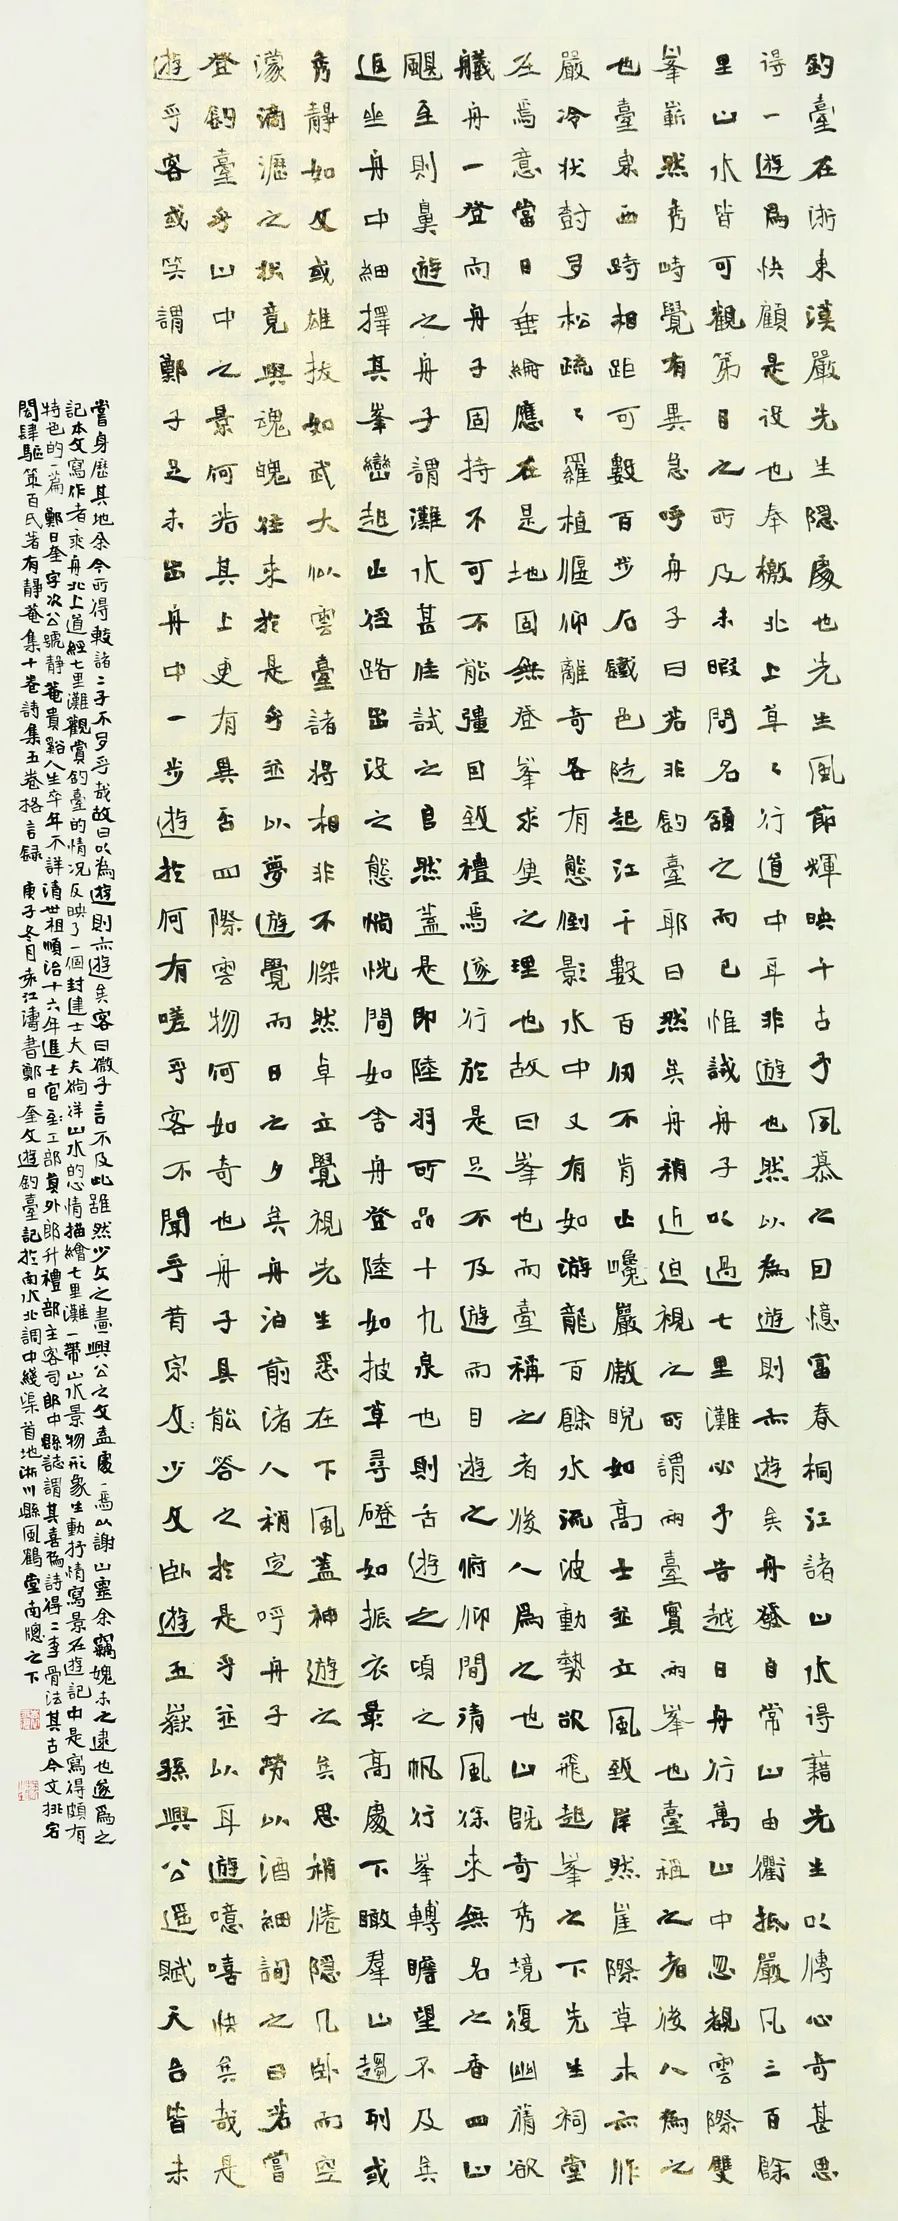 釣臺在浙東漢嚴先生隱處也先生風節輝映千古予夙慕之因憶富春桐江諸山水得藉先生以傳心奇甚思
得一遊爲快顧是役也奉檄北上草々行道中耳非遊也然以為遊則亦遊矣舟發自常山由衢抵嚴凡三百餘
里山水皆可觀第目之所及未暇問名頷之而已惟誡舟子以過七里灘必予告越日舟行萬山中忽覩雲際雙
峯嶄然秀峙覺有異急呼舟子曰若非釣臺耶曰然矣舟稍近迫視之所謂兩臺實兩峯也臺稱之者後人為之
也臺東西跱相距可數百步石鐵色陡起江干數百仞不肯止巉嚴傲睨如高士並立風致岸然崖際草木亦作
嚴冷狀對多松疏々羅植偃仰離奇各有態倒影水中又有如游龍百餘水流波動勢欲飛起峯之下先生祠堂
在焉意當日垂綸應在是地固無登峯求魚之理也故曰峯也而臺稱之者後人爲之也山既奇秀境復幽蒨欲
艤舟一登而舟子固持不可不能彊因致禮焉遂行於是足不及遊而目遊之俯仰間清風徐來無名之香四山
颶至則鼻遊之舟子謂灘水甚佳試之良然蓋是即陸羽所品十九泉也則舌遊之頃之帆行峯轉瞻望不及矣
返坐舟中細擇其峯巒起止徑路出沒之態惝恍間如舍舟登陸如披草尋磴如振衣最高處下瞰羣山趨列或
秀靜如文或雄拔如武大似雲臺諸將相非不傑然卓立覺視先生悉在下風蓋神遊之矣思稍倦隱几臥而空
濛滴瀝之松竟與魂魄往來於是乎並以夢遊覺而日之夕矣舟泊前渚人稍定呼舟子勞以酒細詢之曰若嘗
登釣臺乎山中之景何若其上更有異否四際雲物何如奇也舟子具能答之於是乎並以耳遊噫嘻快矣哉是
遊乎客或笑謂鄭子足未出舟中一步遊於何有嗟乎客不聞乎昔宗文少文臥遊五嶽孫興公遥賦天台皆未
嘗身歷其地余今所得較諸二子不多乎哉故曰以為遊則亦遊矣客曰微子言不及此雖然少文之畫興公之文盍處一焉以謝山靈余竊媿未之逮也遂爲之
記本文寫作者乘舟北上道經七里灘觀賞釣臺的情况反映了一個封建士大夫徜徉山水的心情描繪七里灘一帶山水景物形象生動抒情寫景在遊記中是寫得頗有
特色的一篇鄭日奎字次公號靜菴貴谿人生卒年不詳清世祖順治十六年進士官至工部員外郎升禮部主客司郎中縣誌謂其喜爲詩得二李骨法其古今文排宕
閎肆驅策百氏著有靜菴集十卷詩集五卷格言錄 庚子冬月 江濤書鄭日奎文遊釣臺記於南水北調中綫渠首地淅川縣風鶴堂南牕之下